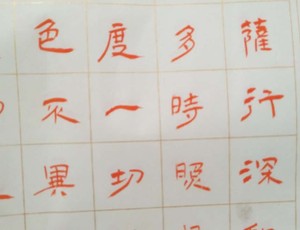 薩行深
多時照
度一切
色不異